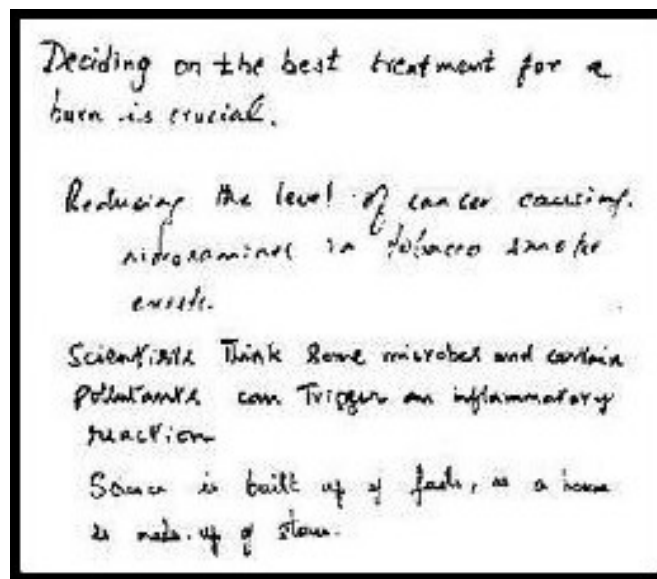 Deciding on the best treatment for a
burn is crucial.
Reducing the level of cancer causing.
in tobacco smoke
Scientists Think Some microbes and certain
pollutants can Trigger an inflammatory
reaction
Science is built up of facts, as a house
is made. up of stones.